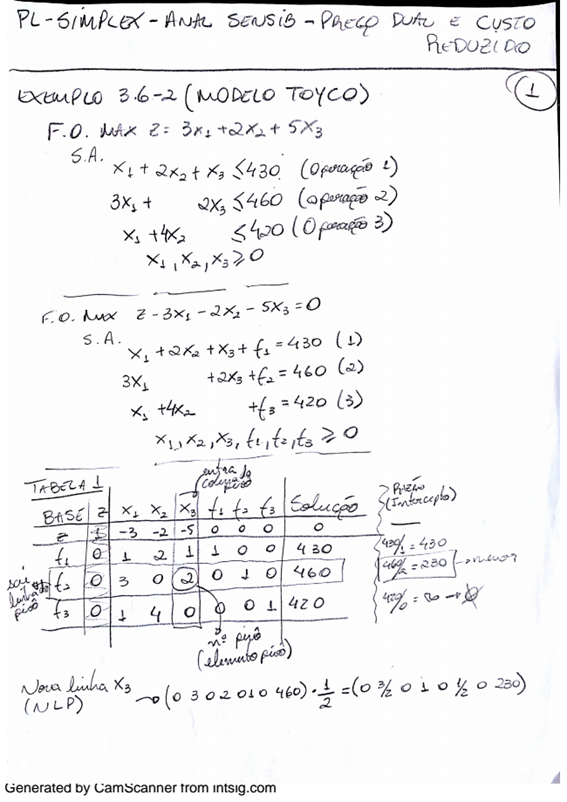 PL-SIMPLEX-ANAL SENSIB-PREÇO DUAL E CUSTO
REDUZIDO
1
EXEMPLO 3.6-2 (MODELO TOYCO)
F.O. MAX Z = 3x1 + 2x2 + 5x3
S.A.
x1 + 2x2 + x3 ≤ 430 (Operação 1)
3x1 + 2x3 ≤ 460 (operação 2)
x1 + 4x2 ≤ 420 (Operação 3)
x1, x2, x3 ≥ 0
F.O. MAX Z - 3x1 - 2x2 - 5x3 = 0
S.A.
x1 + 2x2 + x3 + f1 = 430 (1)
3x1 + 2x3 + f2 = 460 (2)
x1 + 4x2 + f3 = 420 (3)
x1, x2, x3, f1, f2, f3 ≥ 0
TABELA 1
entra da
coluna pivô
Razão
(Intercepto)
BASE Z x1 x2 x3 f1 f2 f3 Solução
Z 1 -3 -2 -5 0 0 0 0 —
f1 0 1 2 1 1 0 0 430 430/1 = 430
sai
linha do
pivô
f2 0 3 0 2 0 1 0 460 460/2 = 230 → menor
f3 0 1 4 0 0 0 1 420 420/0 = ∞
nº pivô
(elemento pivô)
Nova linha x3
(NLP)
→ (0 3 0 2 0 1 0 460) · 1/2 = (0 3/2 0 1 0 1/2 0 230)
Generated by CamScanner from intsig.com